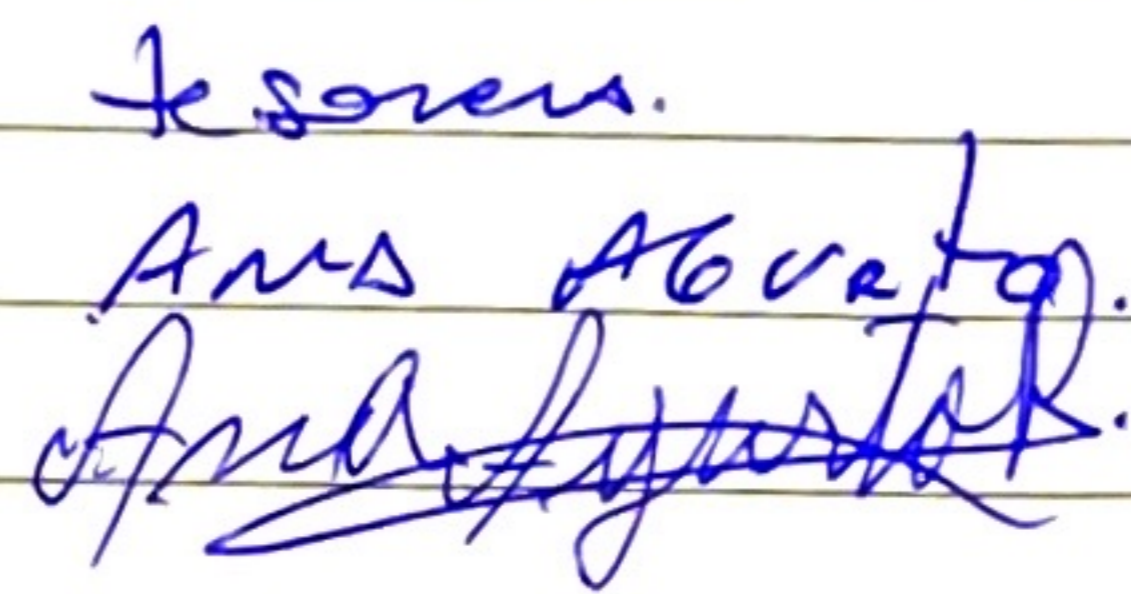 tesorera.
Ana Agurto.
Ana Agurto